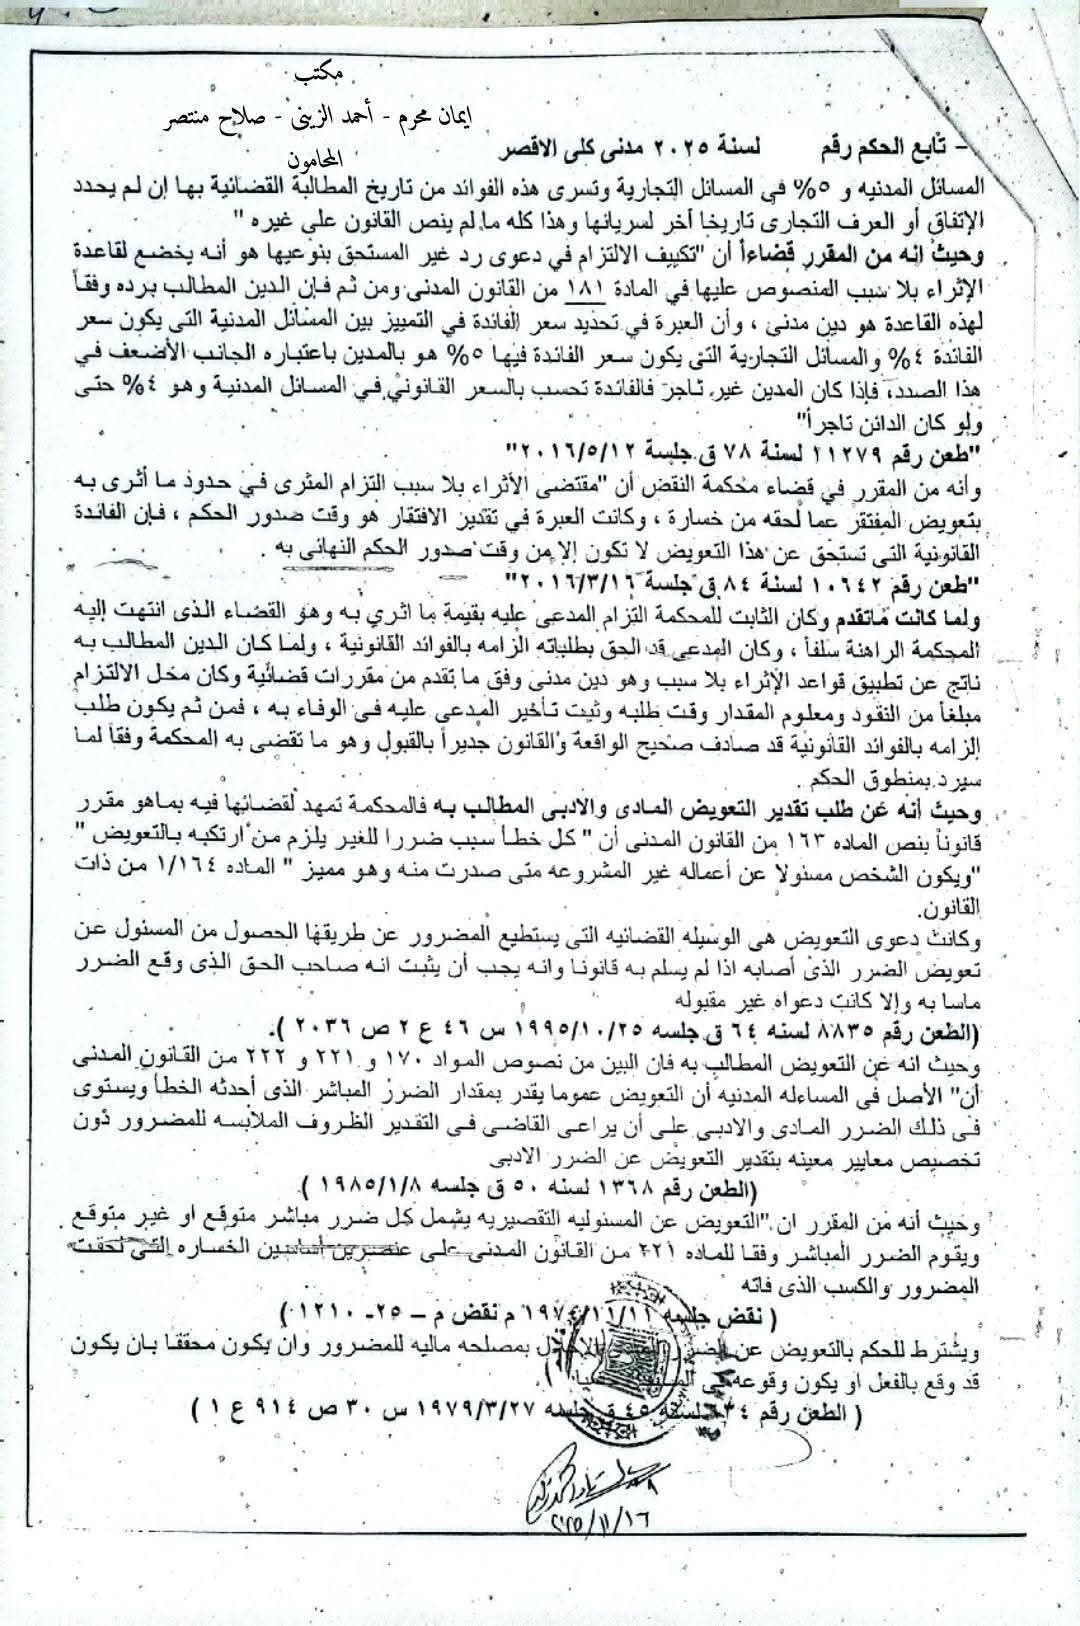 مكتب
ايمان محرم - أحمد الزينى - صلاح منتصر
المحامون
- تابع الحكم رقم لسنة ٢٠٢٥ مدنى كلى الاقصر
المسائل المدنيه و ٥% في المسائل التجارية وتسرى هذه الفوائد من تاريخ المطالبة القضائية بها إن لم يحدد
الإتفاق أو العرف التجارى تاريخا آخر لسريانها وهذا كله ما لم ينص القانون على غيره "
وحيث انه من المقرر قضاءأ أن "تكييف الالتزام في دعوى رد غير المستحق بنوعيها هو أنه يخضع لقاعدة
الإثراء بلا سبب المنصوص عليها في المادة ١٨١ من القانون المدنى ومن ثم فإن الدين المطالب برده وفقاً
لهذه القاعدة هو دين مدنى ، وأن العبرة في تحديد سعر الفائدة في التمييز بين المسائل المدنية التى يكون سعر
الفائدة ٤% والمسائل التجارية التى يكون سعر الفائدة فيها ٥% هو بالمدين باعتباره الجانب الأضعف في
هذا الصدد، فإذا كان المدين غير تاجر فالفائدة تحسب بالسعر القانوني في المسائل المدنية وهو ٤% حتى
ولو كان الدائن تاجراً"
"طعن رقم ١١٢٧٩ لسنة ٧٨ ق جلسة ٢٠١٦/٥/١٢"
وأنه من المقرر في قضاء محكمة النقض أن "مقتضى الأثراء بلا سبب التزام المثرى في حدود ما أثرى به
بتعويض المفتقر عما لحقه من خسارة ، وكانت العبرة في تقدير الافتقار هو وقت صدور الحكم ، فإن الفائدة
القانونية التى تستحق عن هذا التعويض لا تكون إلا من وقت صدور الحكم النهائى به .
"طعن رقم ١٠٦٤٢ لسنة ٨٤ ق جلسة ٢٠١٦/٣/١٦"
ولما كانت ماتقدم وكان الثابت للمحكمة التزام المدعى عليه بقيمة ما اثري به وهو القضاء الذى انتهت إليه
المحكمة الراهنة سلفاً ، وكان المدعى قد الحق بطلباته الزامه بالفوائد القانونية ، ولما كان الدين المطالب به
ناتج عن تطبيق قواعد الإثراء بلا سبب وهو دين مدنى وفق ما تقدم من مقررات قضائية وكان محل الالتزام
مبلغاً من النقود ومعلوم المقدار وقت طلبه وثبت تأخير المدعى عليه فى الوفاء به ، فمن ثم يكون طلب
إلزامه بالفوائد القانونية قد صادف صحيح الواقعة والقانون جديراً بالقبول وهو ما تقضى به المحكمة وفقاً لما
سيرد بمنطوق الحكم .
وحيث أنه عن طلب تقدير التعويض المادى والادبى المطالب به فالمحكمة تمهد لقضائها فيه بماهو مقرر
قانوناً بنص الماده ١٦٣ من القانون المدنى أن " كل خطأ سبب ضررا للغير يلزم من ارتكبه بالتعويض "
"ويكون الشخص مسئولا عن أعماله غير المشروعه متى صدرت منه وهو مميز " الماده ١/١٦٤ من ذات
القانون.
وكانت دعوى التعويض هى الوسيله القضائيه التى يستطيع المضرور عن طريقها الحصول من المسئول عن
تعويض الضرر الذى أصابه اذا لم يسلم به قانونا وانه يجب أن يثبت انه صاحب الحق الذى وقع الضرر
ماسا به وإلا كانت دعواه غير مقبوله
(الطعن رقم ٨٨٣٥ لسنه ٦٤ ق جلسه ١٩٩٥/١٠/٢٥ س ٤٦ ع ٢ ص ٢٠٣٦ ).
وحيث انه عن التعويض المطالب به فان البين من نصوص المواد ١٧٠ و ٢٢١ و ٢٢٢ من القانون المدنى
أن" الأصل فى المساءله المدنيه أن التعويض عموما يقدر بمقدار الضرر المباشر الذى أحدثه الخطأ ويستوى
فى ذلك الضرر المادى والادبى على أن يراعى القاضى فى التقدير الظروف الملابسه للمضرور دون
تخصيص معايير معينه بتقدير التعويض عن الضرر الادبى
(الطعن رقم ١٣٦٨ لسنه ٥٠ ق جلسه ١٩٨٥/١/٨ )
وحيث أنه من المقرر ان "التعويض عن المسئوليه التقصيريه يشمل كل ضرر مباشر متوقع او غير متوقع .
ويقوم الضرر المباشر وفقا للماده ٢٢١ من القانون المدنى على عنصرين أساسين الخساره التى لحقت
المضرور والكسب الذى فاته
( نقض جلسه ١٩٧٤/١١/١١ م نقض م – ٢٥- ١٢١٠)
ويشترط للحكم بالتعويض عن الضرر المادى الإخلال بمصلحه ماليه للمضرور وان يكون محققا بان يكون
قد وقع بالفعل او يكون وقوعه فى
( الطعن رقم لسنه ٤٥ ق جلسه ١٩٧٩/٣/٢٧ س ٣٠ ص ٩١٤ ع ١ )
٢٠٢٥/١١/١٦